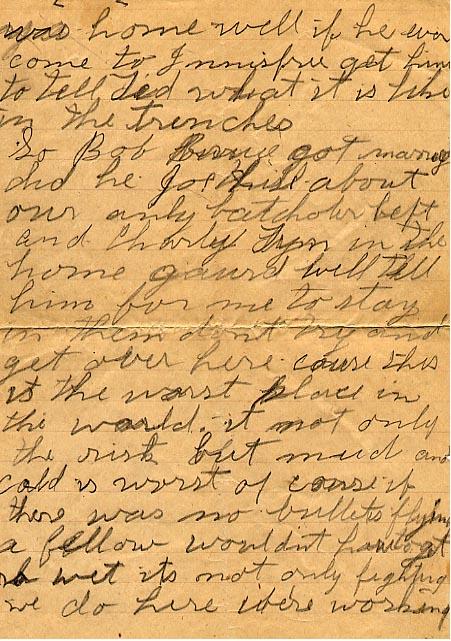 was home well if he ever
come to Innisfree get him
to tell Ted what it is like
in the trenches
So Bob got marry
did he Joe Hill about
our only batcholer left
and Charley in the
home gaurd well tell
him for me to stay
in them dont try and
get over here cause this
is the worst place in
the world. it not only
the risk but mud and
cold is worst of course if
there was no bullets flying
a fellow wouldnt have got
wet its not only fighting
we do here were working